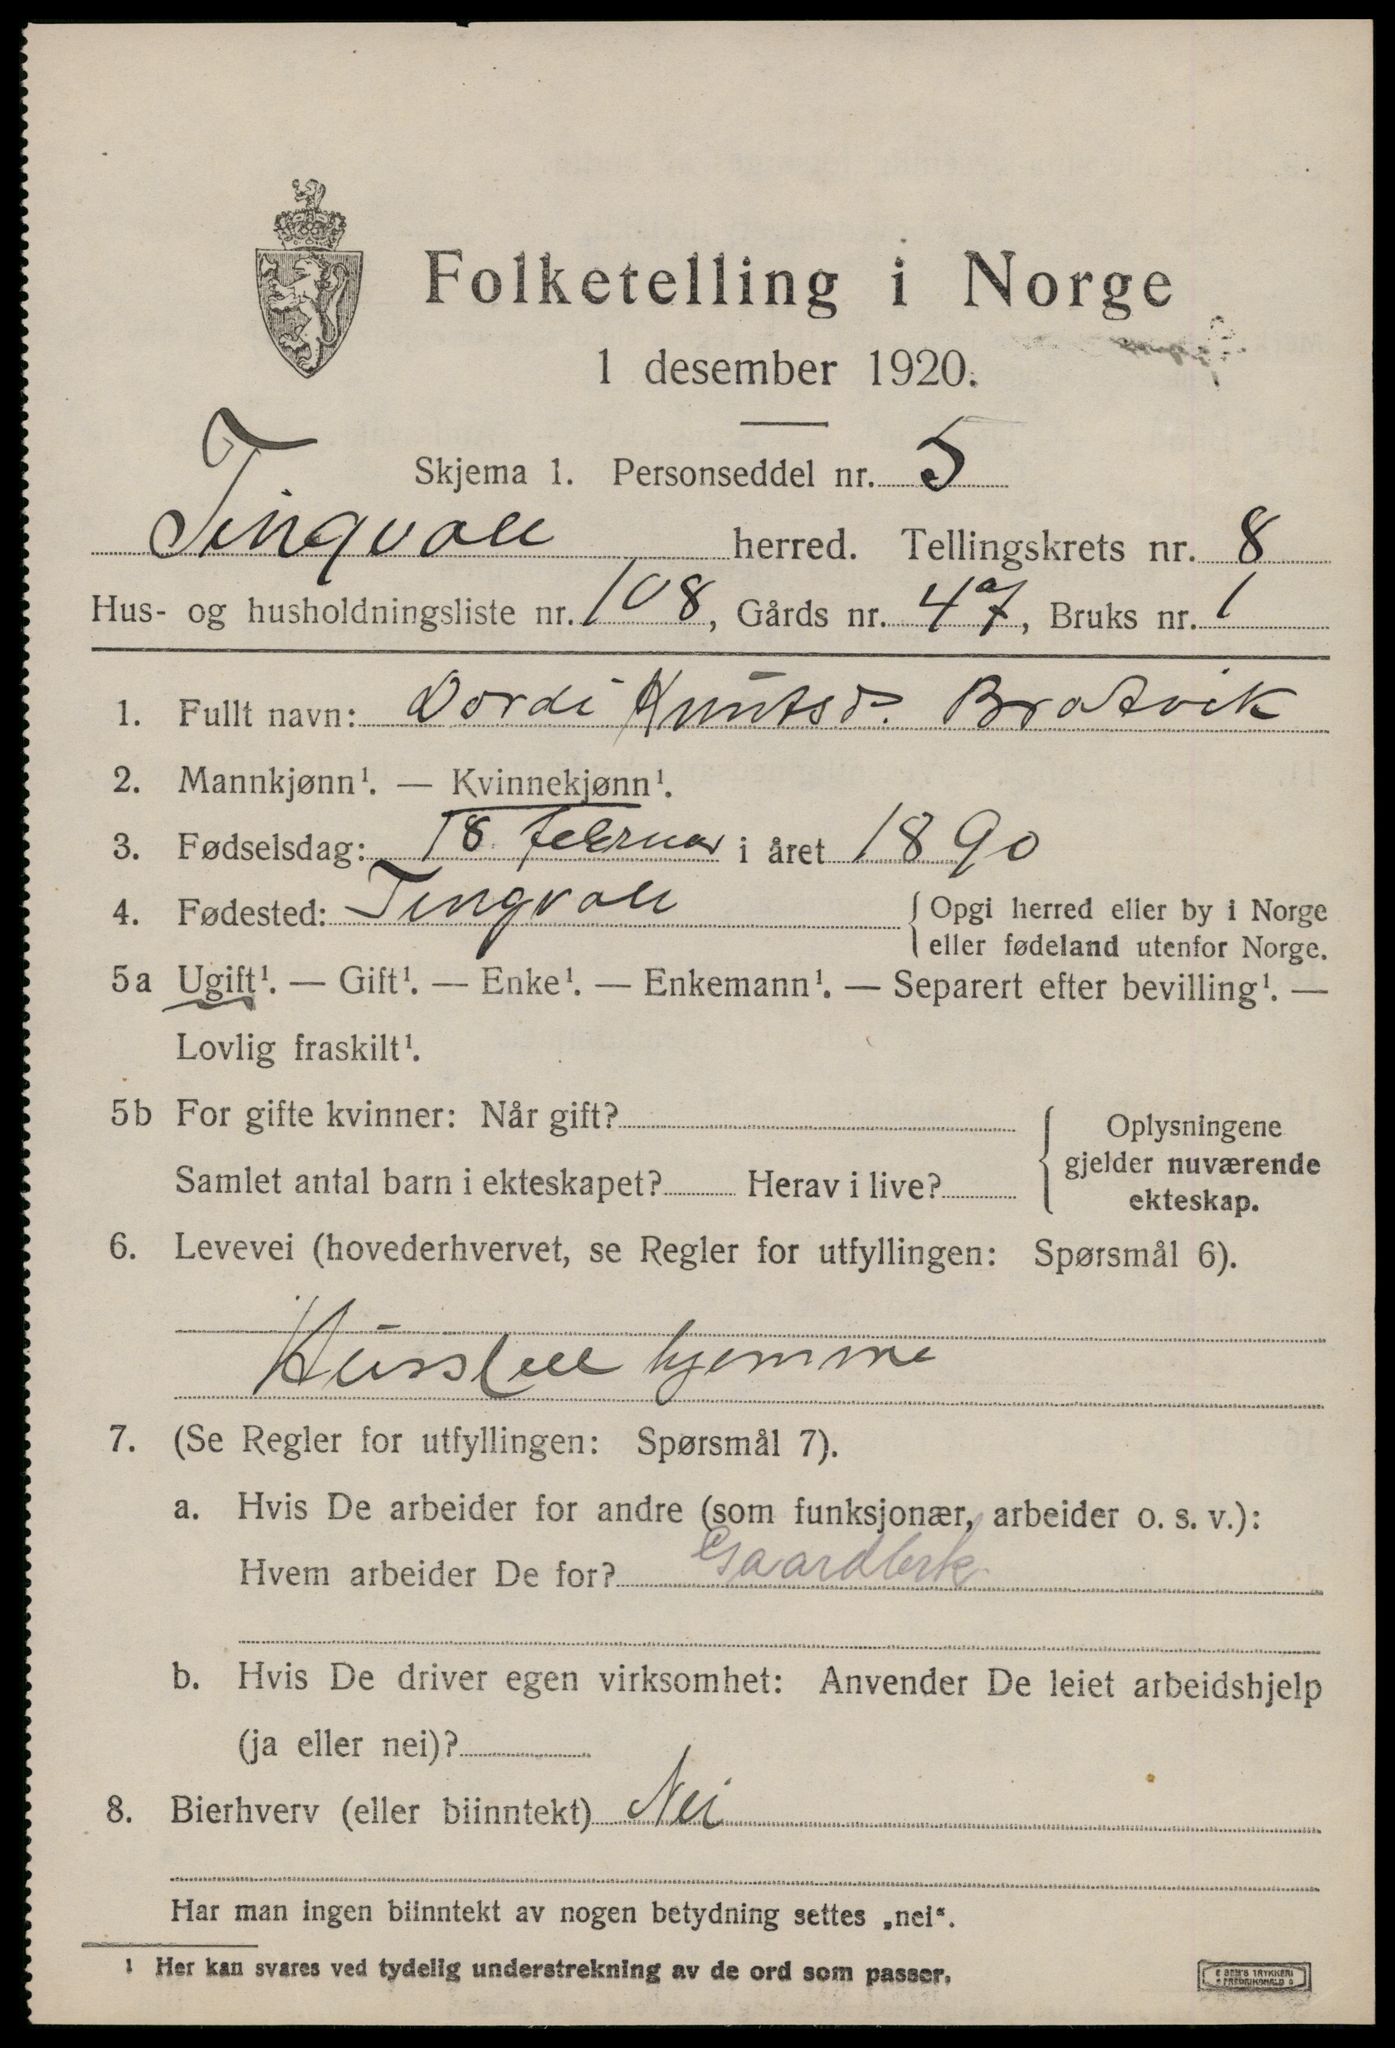 Folketelling i Norge
1 desember 1920.
Skjema 1. Personseddel nr. 5
Tingvoll herred. Tellingskrets nr. 8
Hus- og husholdningsliste nr. 108, Gårds nr. 47a, Bruks nr. 1
1. Fullt navn: Dordi Knutsd. Bratvik
2. Mannkjønn¹. — Kvinnekjønn¹.
3. Fødselsdag: 18 februar i året 1890
4. Fødested: Tingvoll { Opgi herred eller by i Norge
eller fødeland utenfor Norge.
5a Ugift¹. — Gift¹. — Enke¹. — Enkemann¹. — Separert efter bevilling¹. —
Lovlig fraskilt¹.
5b For gifte kvinner: Når gift? { Oplysningene
gjelder nuværende
ekteskap.
Samlet antal barn i ekteskapet? Herav i live?
6. Levevei (hovederhvervet, se Regler for utfyllingen: Spørsmål 6).
Husstell hjemme
7. (Se Regler for utfyllingen: Spørsmål 7).
a. Hvis De arbeider for andre (som funksjonær, arbeider o. s. v.):
Hvem arbeider De for? Gaardbrk
b. Hvis De driver egen virksomhet: Anvender De leiet arbeidshjelp
(ja eller nei)?
8. Bierhverv (eller biinntekt) Nei
Har man ingen biinntekt av nogen betydning settes „nei“.
¹ Her kan svares ved tydelig understrekning av de ord som passer.
SEM'S TRYKKERI
FREDRIKSHALD